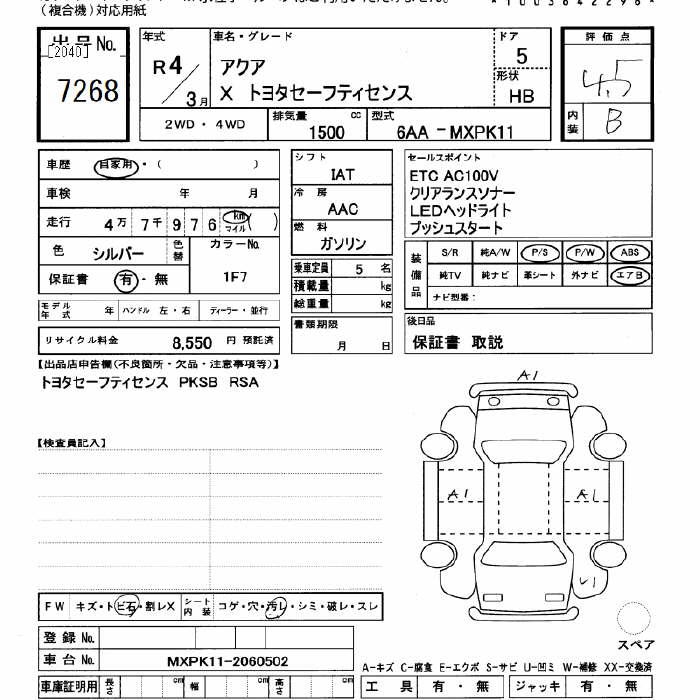 (複合機)対応用紙
出品No.
[2040]
7268
年式
R4/3月
車名・グレード
アクア
X トヨタセーフティセンス
ドア
5
形状
HB
評価点
4.5
内装
B
2WD・4WD
排気量
1500 cc
型式
6AA－MXPK11
車歴 自家用・( )
車検 年 月
走行 4万 7千 9 7 6 km マイル ( )
色 シルバー 色替 カラーNo.
保証書 有・無 1F7
モデル年式 年 ハンドル 左・右 ディーラー・並行
リサイクル料金 8,550 円 預託済
シフト
IAT
冷房
AAC
燃料
ガソリン
乗車定員 5 名
積載量 kg
総重量 kg
書類期限
月 日
セールスポイント
ETC AC100V
クリアランスソナー
LEDヘッドライト
プッシュスタート
装備品
S/R 純A/W P/S P/W ABS
純TV 純ナビ 革シート 外ナビ エアB
ナビ型番:
後日品
保証書 取説
【出品店申告欄(不良箇所・欠品・注意事項等)】
トヨタセーフティセンス PKSB RSA
【検査員記入】
A1
A1
A1
スペア
FW キズ・トビ石・割レX シート内装 コゲ・穴・汚レ・シミ・破レ・スレ
登録No.
車台No. MXPK11-2060502
A-キズ C-腐食 E-エクボ S-サビ U-凹ミ W-補修 XX-交換済
車庫証明用 長さ cm 幅 cm 高さ cm
工具 有・無 ジャッキ 有・無